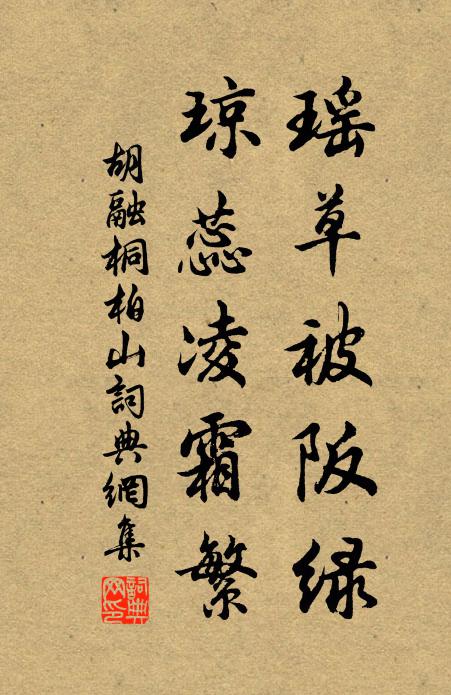 瑶草被阪绿
琼蕊凌霜繁
胡融桐柏山詞典網集